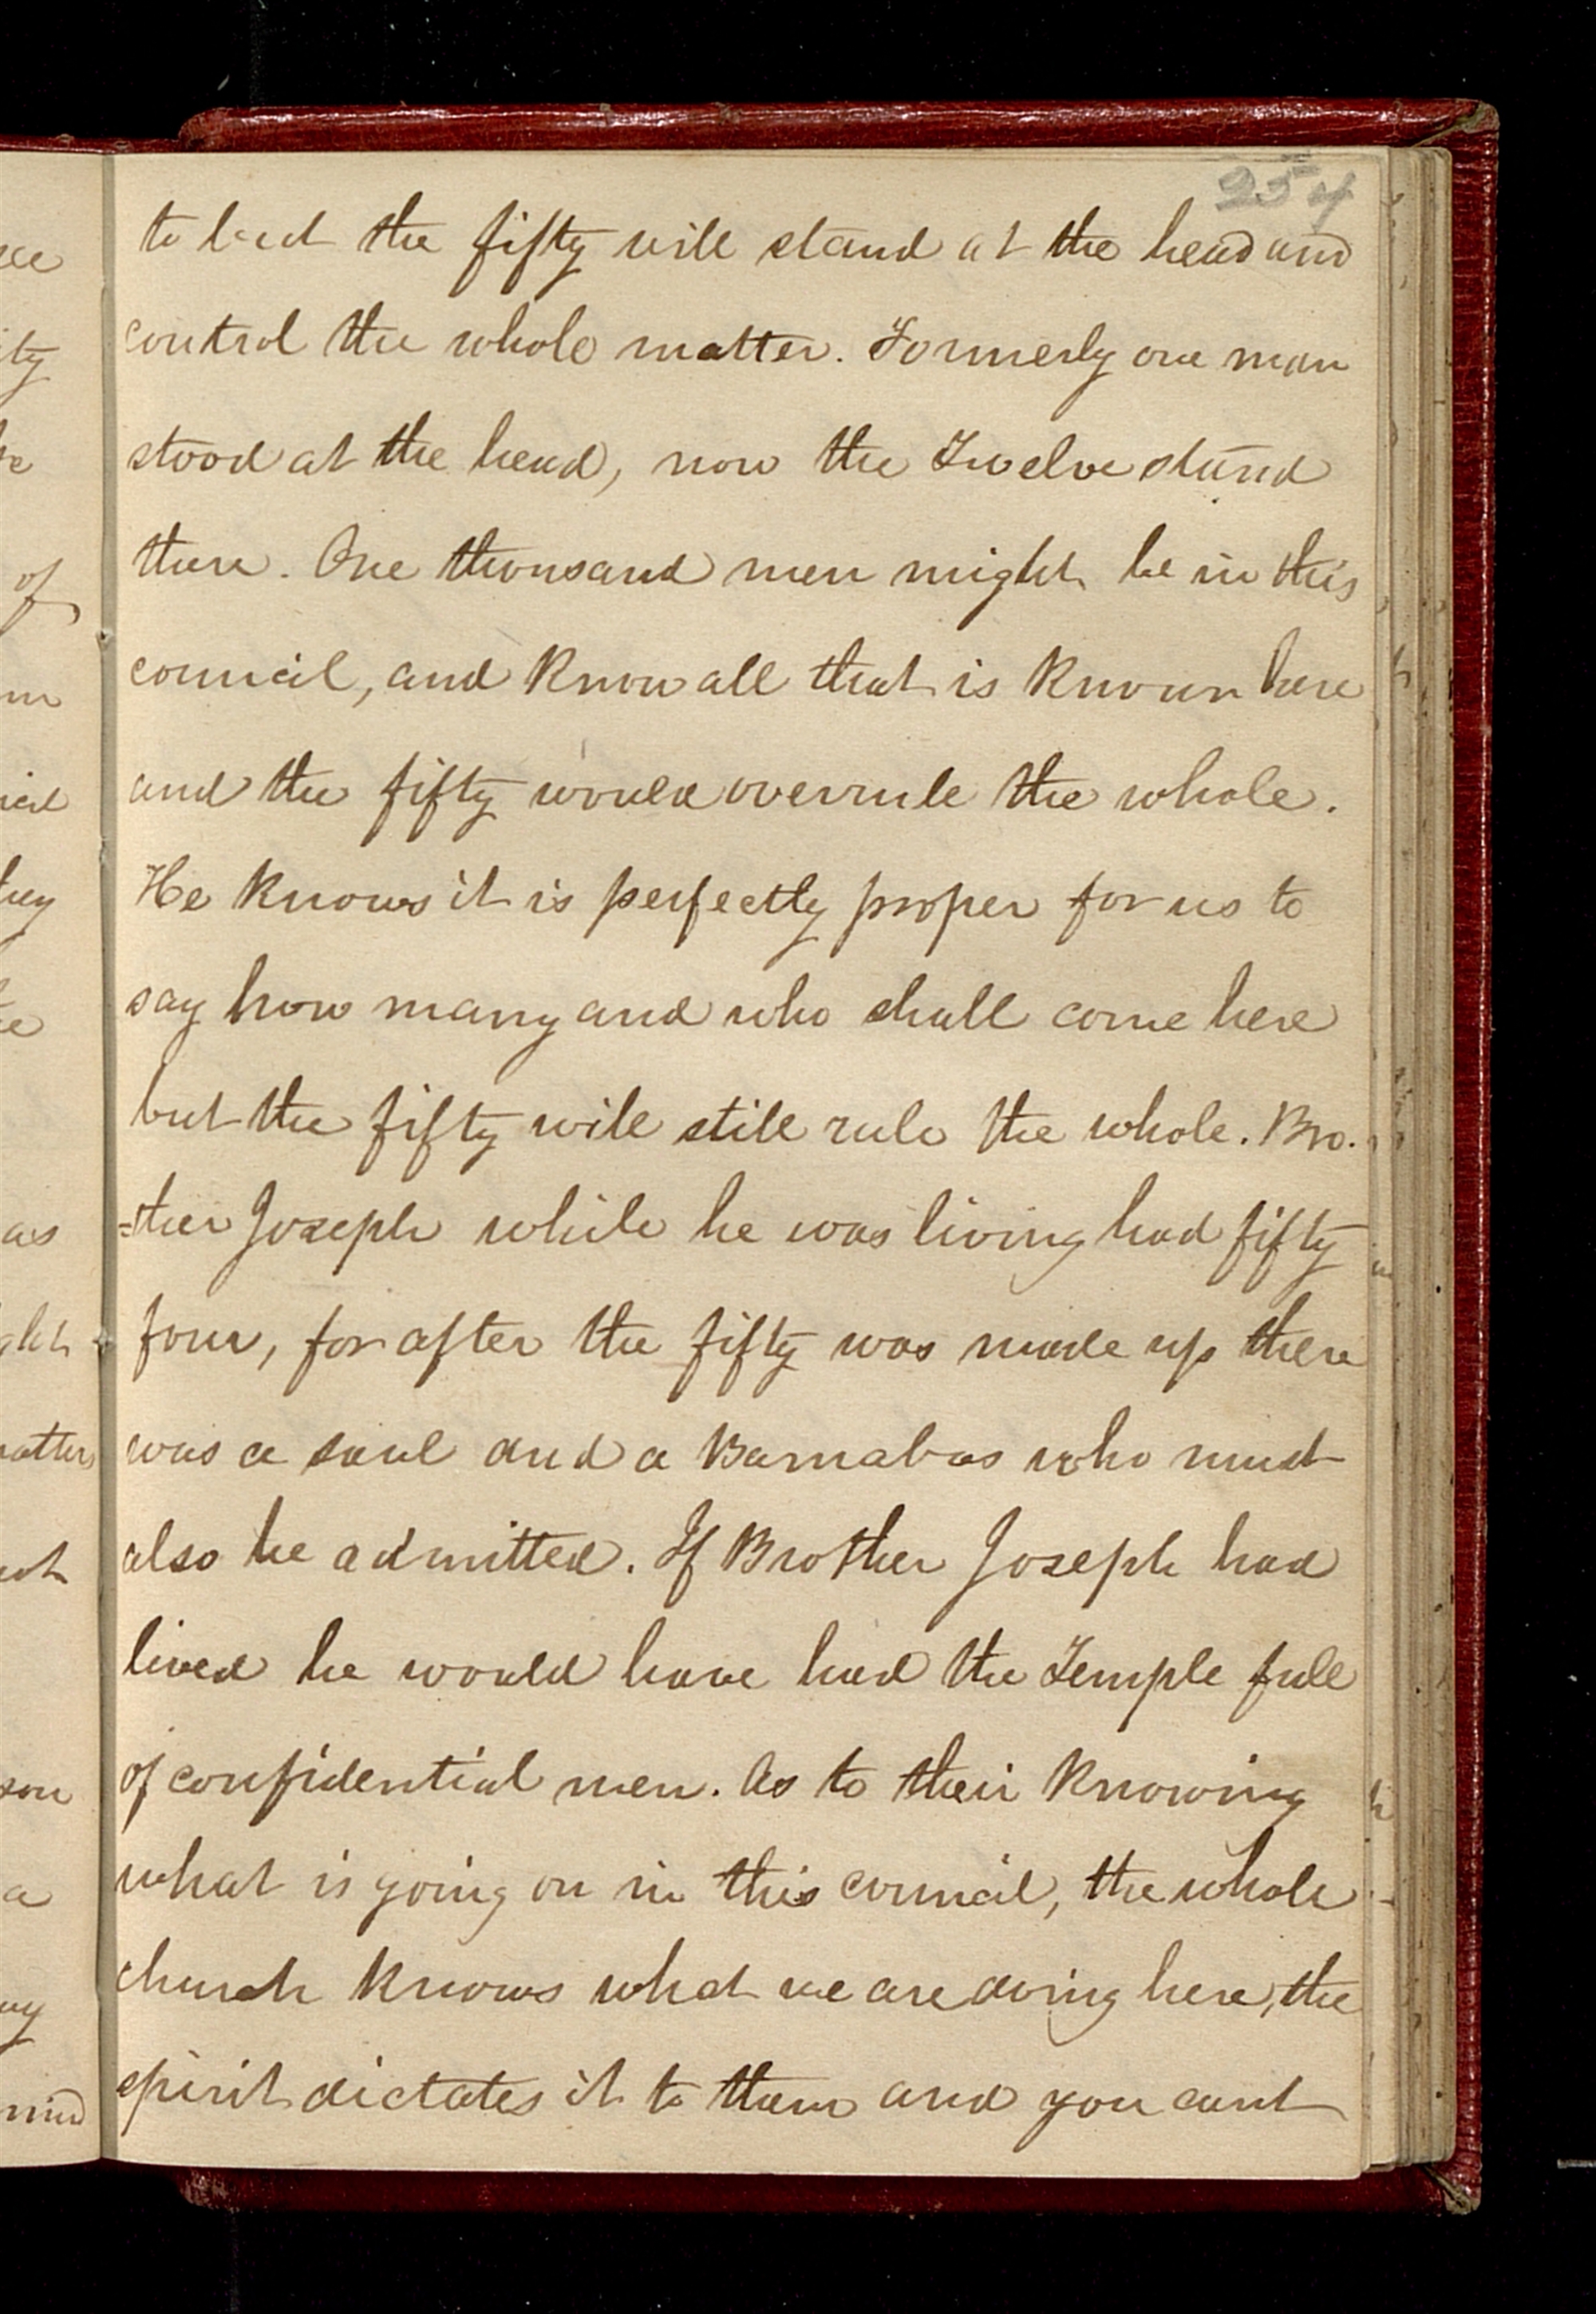 254
to lead the fifty will stand at the head and
control the whole matter. Formerly one man
stood at the head, now the Twelve stand
there. One thousand men might be in this
council, and know all that is known here
and the fifty would overrule the whole.
He knows it is perfectly proper for us to
say how many and who shall come here
but the fifty will still rule the whole. Bro.
=ther Joseph while he was living had fifty
four, for after the fifty was made up there
was a saul and a Barnabas who must
also be admitted. If Brother Joseph had
lived he would have had the Temple full
of confidential men. As to their knowing
what is going on in this council, the whole
church knows what we are doing here, the
spirit dictates it to them and you cant